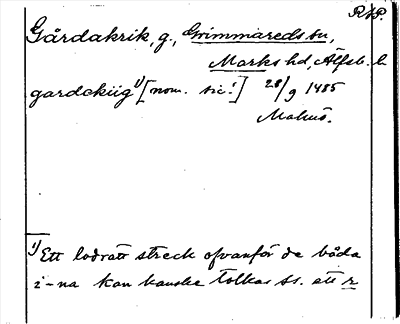 RAP.
Gårdakrik, g., Grimmareds sn,
Marks hd, Älfsb. l.
gardckiig 1) [nom. sic!] 28/9 1485
Malmö.
1) Ett lodrätt streck ofvanför de båda
i-na kan kanske tolkas ss. ett r